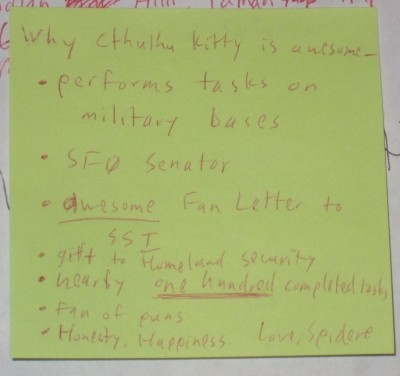 Why Cthulhu Kitty is awesome—
• performs tasks on
military bases
• SFØ Senator
• awesome Fan Letter to
SSI
• gift to Homeland security
• nearly one hundred completed tasks
• Fan of puns
• Honesty, Happiness. Love, Spidere